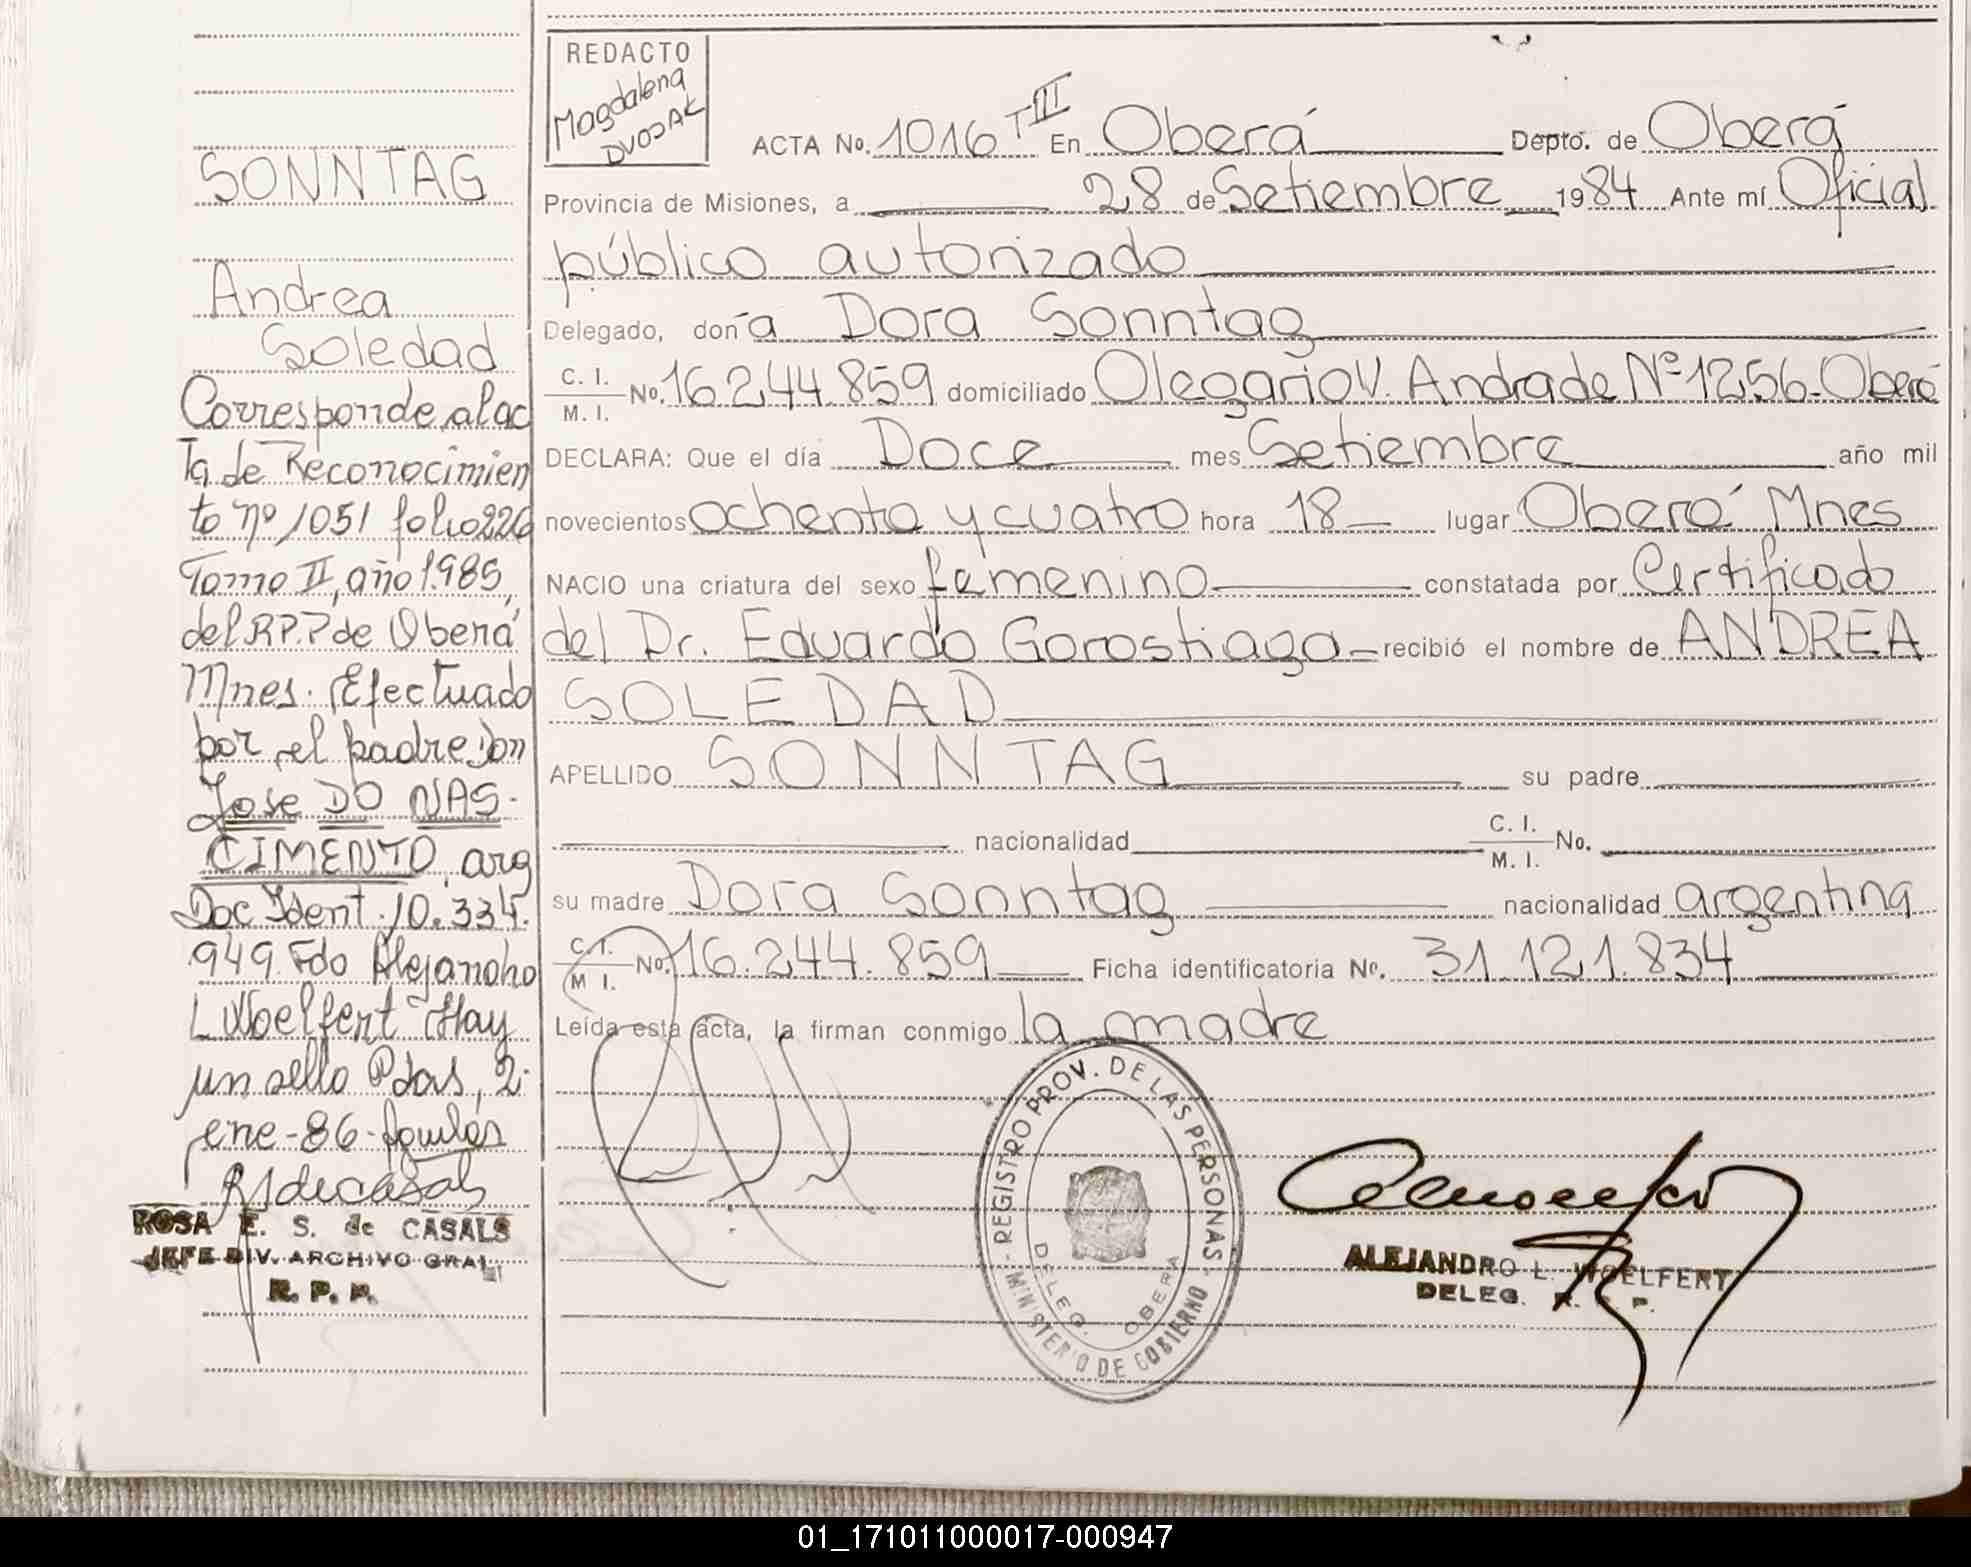 SONNTAG
Andrea
Soledad
Corresponde al ac
ta de Reconocimien
to nº 1051 folio 226
Tomo II, año 1.985,
del R.P.P de Oberá
Mnes. Efectuado
por el padre Don
Jose DO NAS-
CIMENTO, arg
Doc Ident. 10.334.
949 Fdo Alejandro
L Woelfert Hay
un sello Pdas, 2-
ene-86-
ROSA E. S. de CASALS
JEFE DIV. ARCHIVO GRAL.
R. P. P.
REDACTO
Magdalena
DVOJAK
ACTA No. 1016 T III En Oberá Depto. de Oberá
Provincia de Misiones, a 28 de Setiembre 1984 Ante mí Oficial
público autorizado
Delegado, don^a Dora Sonntag
C. I. / M. I. No. 16.244.859 domiciliado Olegario V. Andrade Nº 1256-Oberá
DECLARA: Que el día Doce mes Setiembre año mil
novecientos ochenta y cuatro hora 18 lugar Oberá Mnes
NACIO una criatura del sexo femenino constatada por Certificado
del Dr. Eduardo Gorostiaga recibió el nombre de ANDREA
SOLEDAD
APELLIDO SONNTAG su padre
nacionalidad C. I. / M. I. No.
su madre Dora Sonntag nacionalidad argentina
C. I. / M I. No. 16.244.859 Ficha identificatoria No. 31.121.834
Leída esta acta, la firman conmigo la madre
REGISTRO PROV. DE LAS PERSONAS
MINISTERIO DE GOBIERNO
DELEG. OBERA
ALEJANDRO L. WOELFERT
DELEG. R. P. P.
01_171011000017-000947